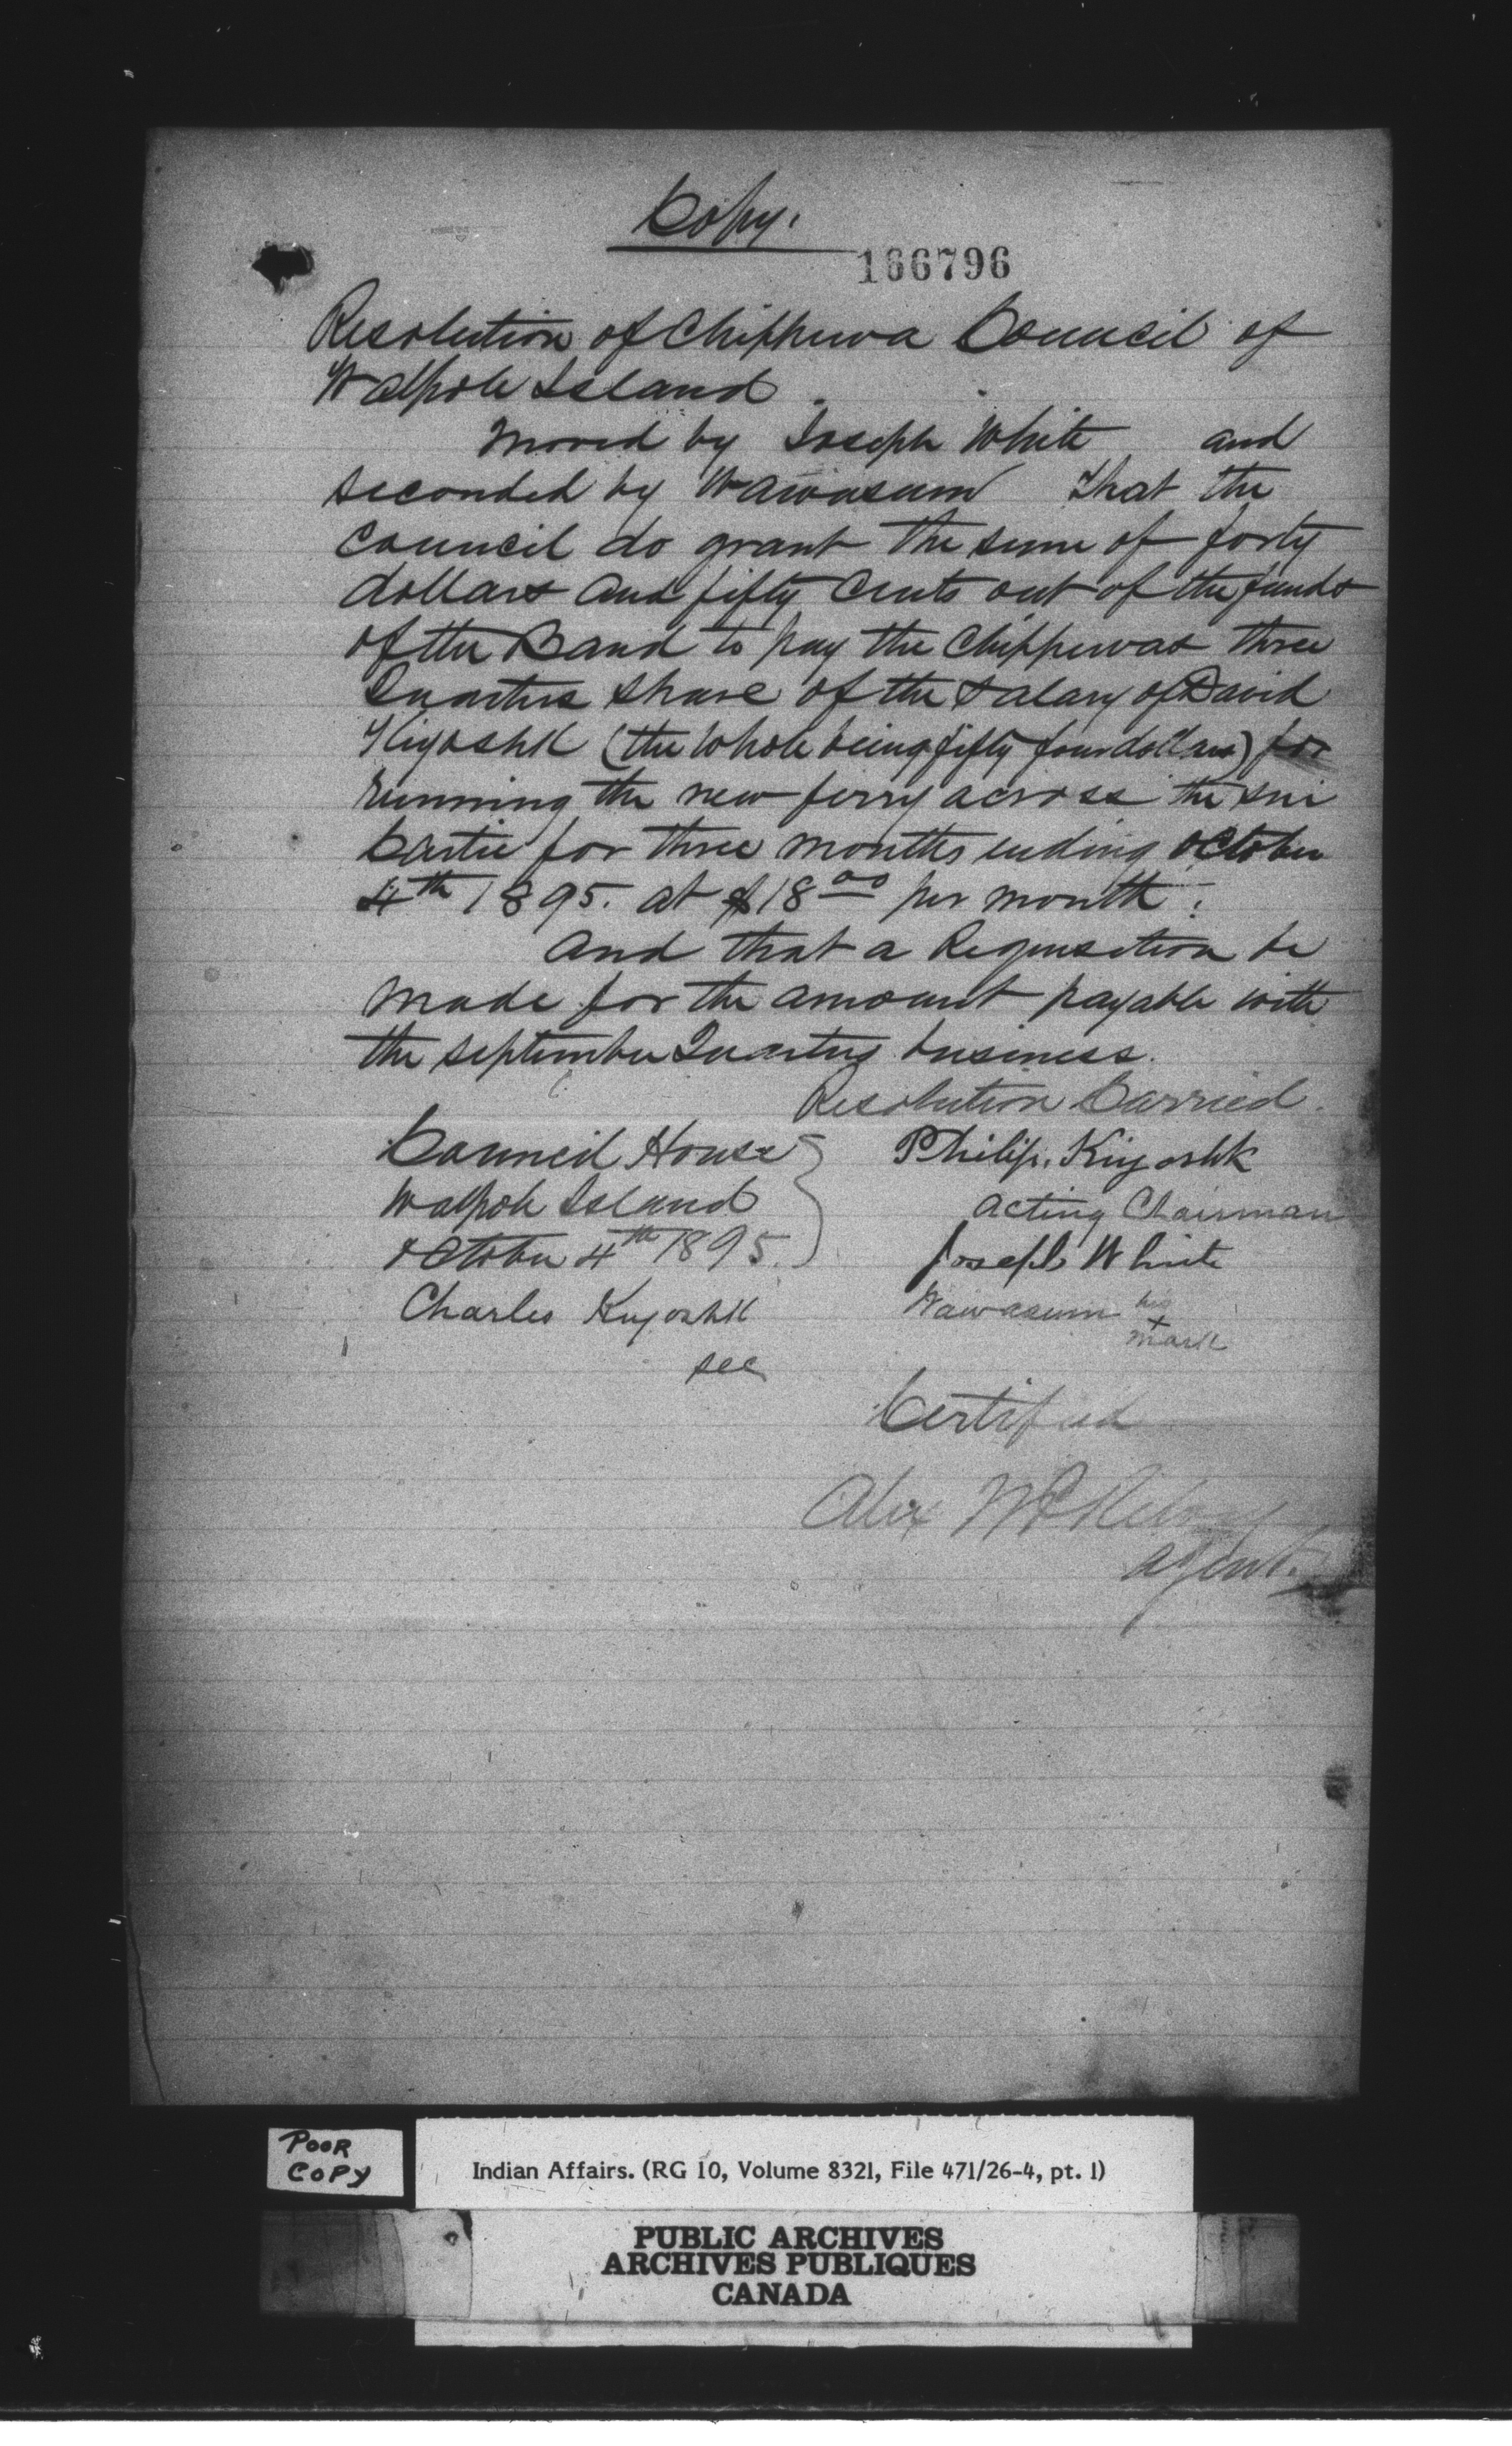 Copy.
166796
Resolution of Chippewa Council of
Walpole Island.
Moved by Joseph White and
seconded by Wawasum that the
Council do grant the sum of forty
dollars and fifty cents out of the funds
of the Band to pay the Chippewas three
Quarters share of the salary of David
Kiyoshk (the whole being fifty four dollars) for
running the new ferry across the Sni
Cartie for three months ending October
4th 1895. at $18.00 per month.
And that a Requisition be
made for the amount payable with
the September Quarters business.
Resolution Carried.
Council House
Walpole Island
October 4th 1895.
Charles Kiyoshk
sec
Philip. Kiyoshk
Acting Chairman
Joseph White
Wawasum his
x
mark
Certified
Alex McKelvey
Agent.
POOR
COPY
Indian Affairs. (RG 10, Volume 8321, File 471/26-4, pt. 1)
PUBLIC ARCHIVES
ARCHIVES PUBLIQUES
CANADA